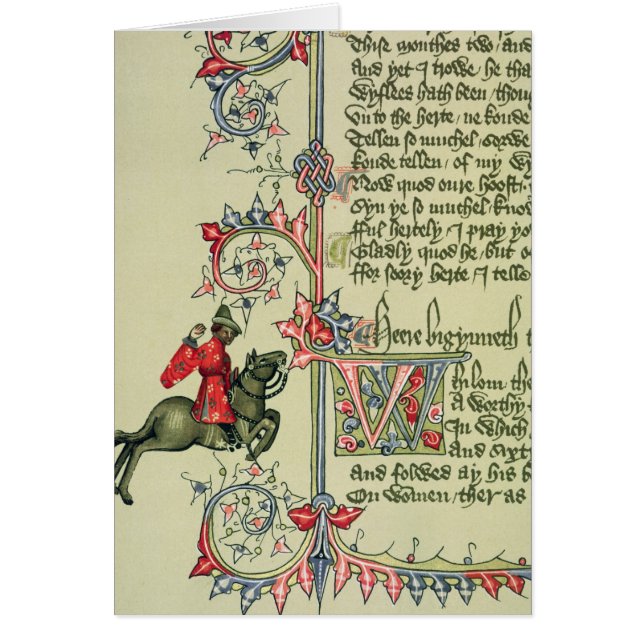 Thise monthes two, and
And yet I trowe / he tha
Wyflees hath been / thou
Vn to the herte / ne koude
Tellen so muchel / sorwe
koude tellen / of my wy
Now quod oure hoost /
Syn ye so muchel know
Ful hertely / I pray yo
Gladly quod he / but o
ffor soory herte / I telle
heere bigynneth t
W hilom the
A worthy
In which
and sixty
and folwed ay his b
On wommen / ther as